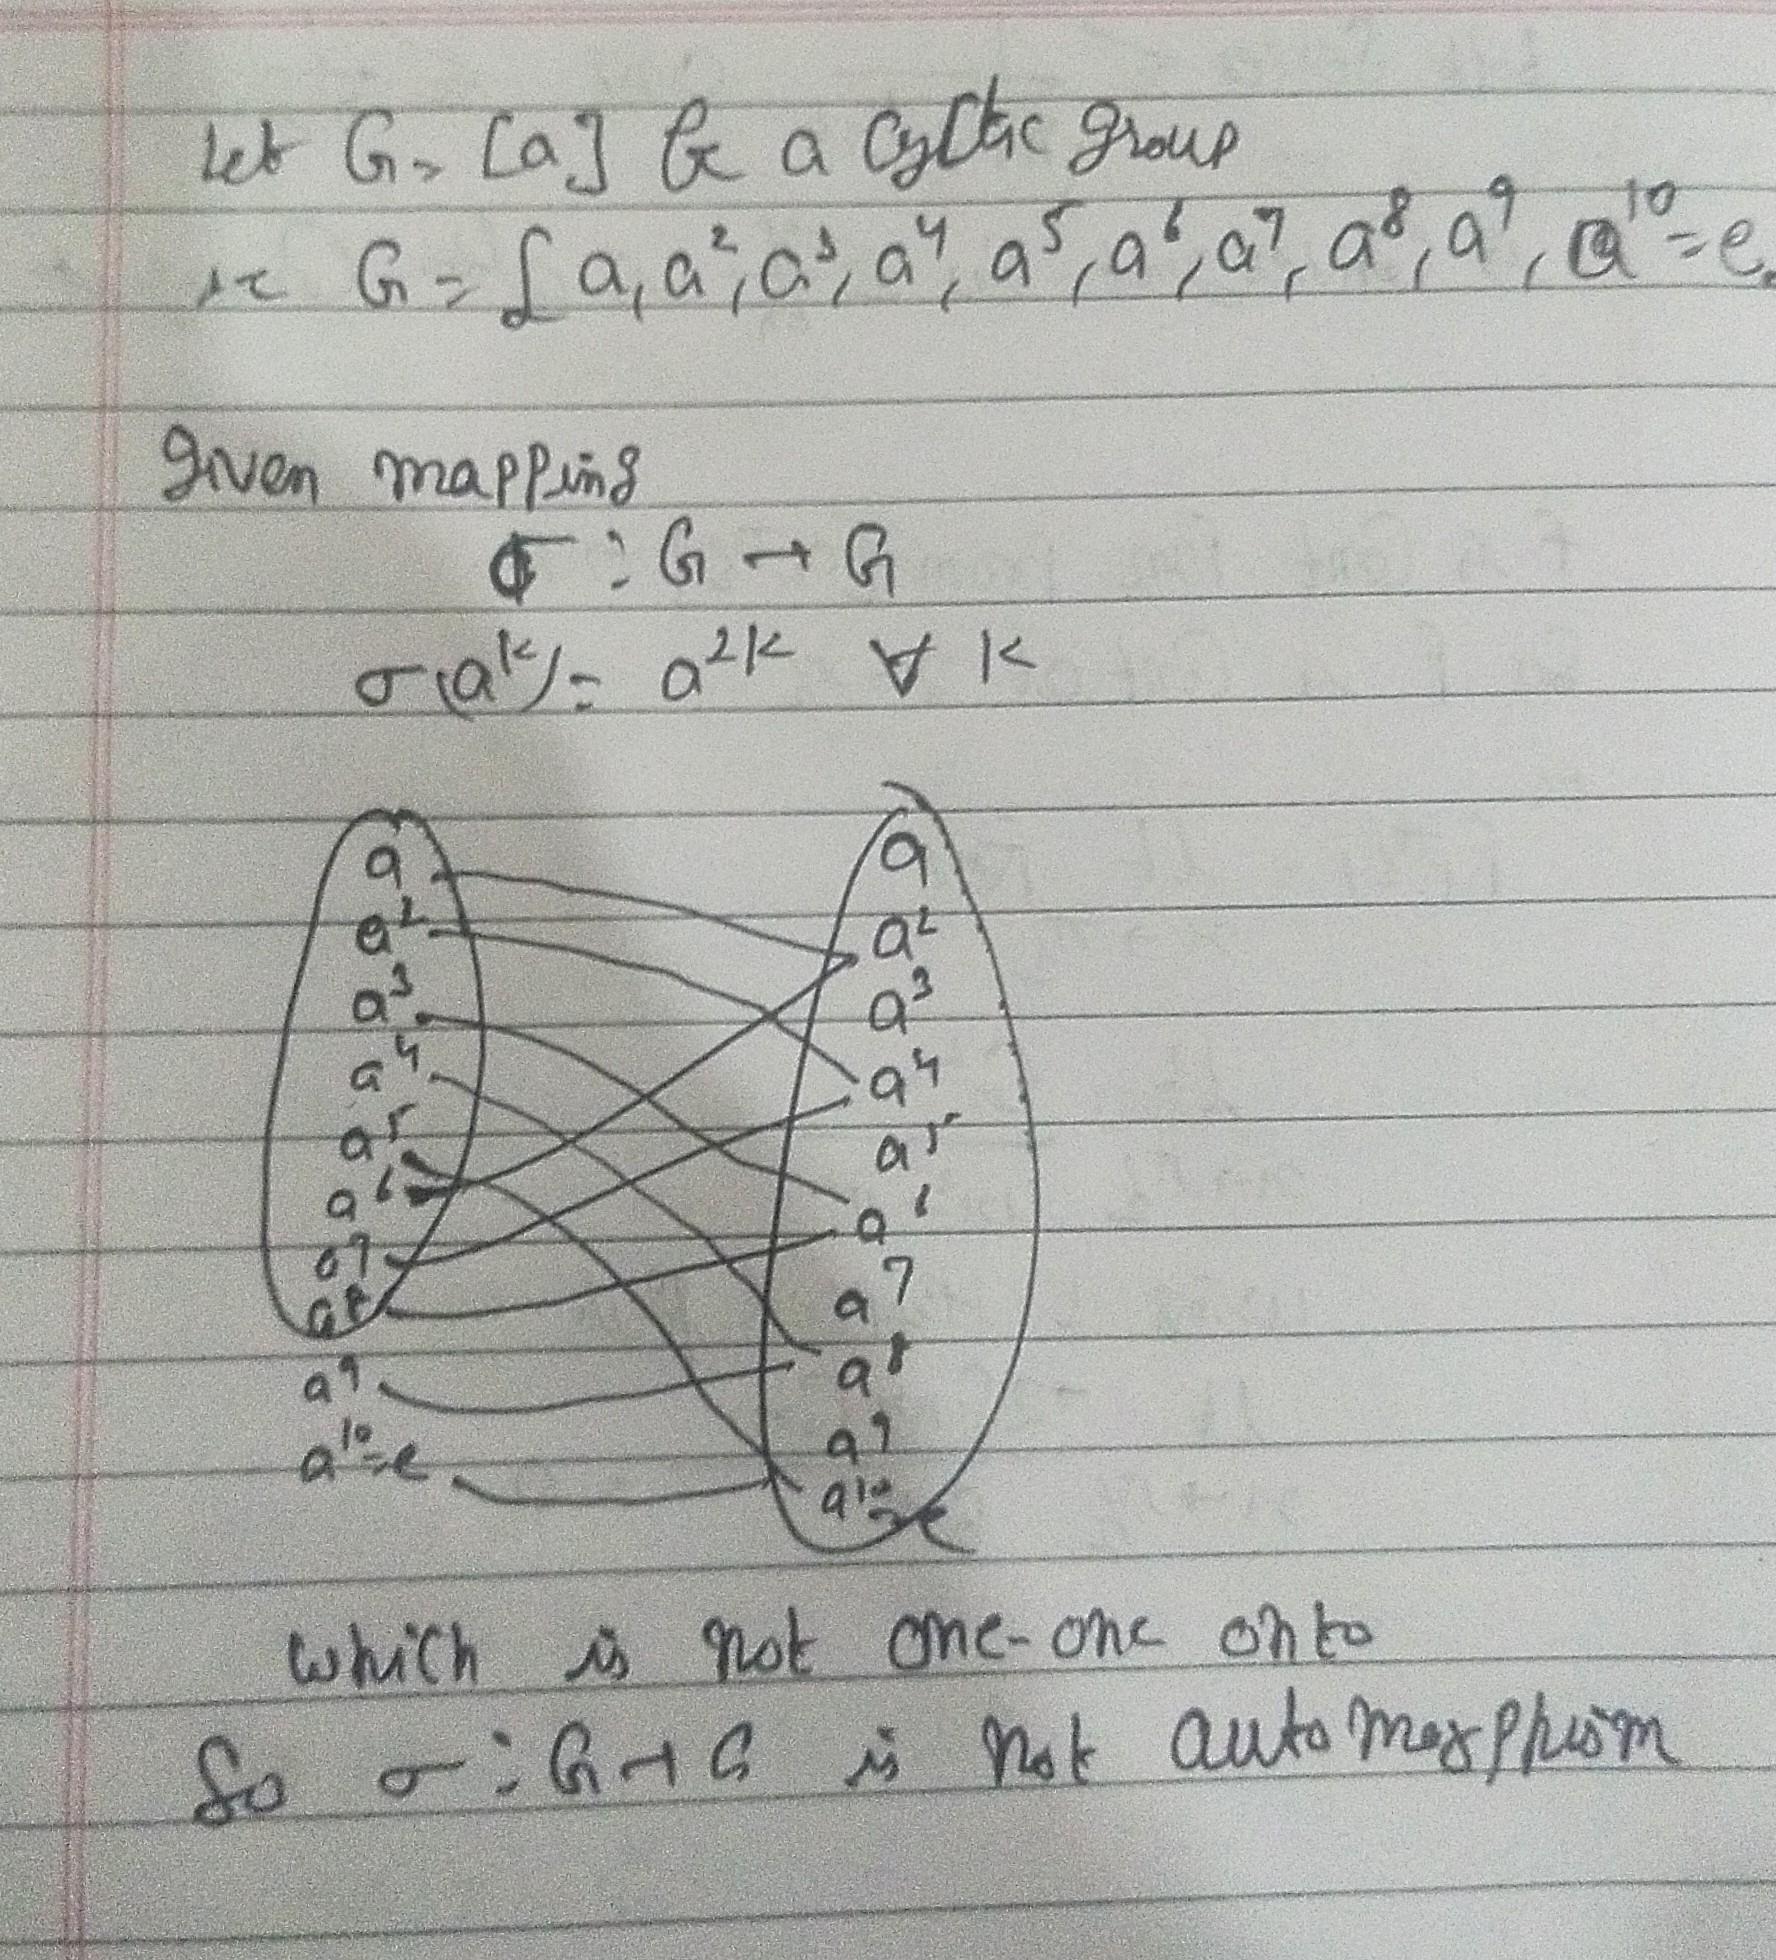 Let G = [a] be a cyclic group
ie G = { a, a², a³, a⁴, a⁵, a⁶, a⁷, a⁸, a⁹, a¹⁰=e
Given mapping
σ : G → G
σ(aᵏ) = a²ᵏ ∀ k
a a
a² a²
a³ a³
a⁴ a⁴
a⁵ a⁵
a⁶ a⁶
a⁷ a⁷
a⁸ a⁸
a⁹ a⁹
a¹⁰=e a¹⁰=e
which is not one-one onto
So σ : G → G is not automorphism